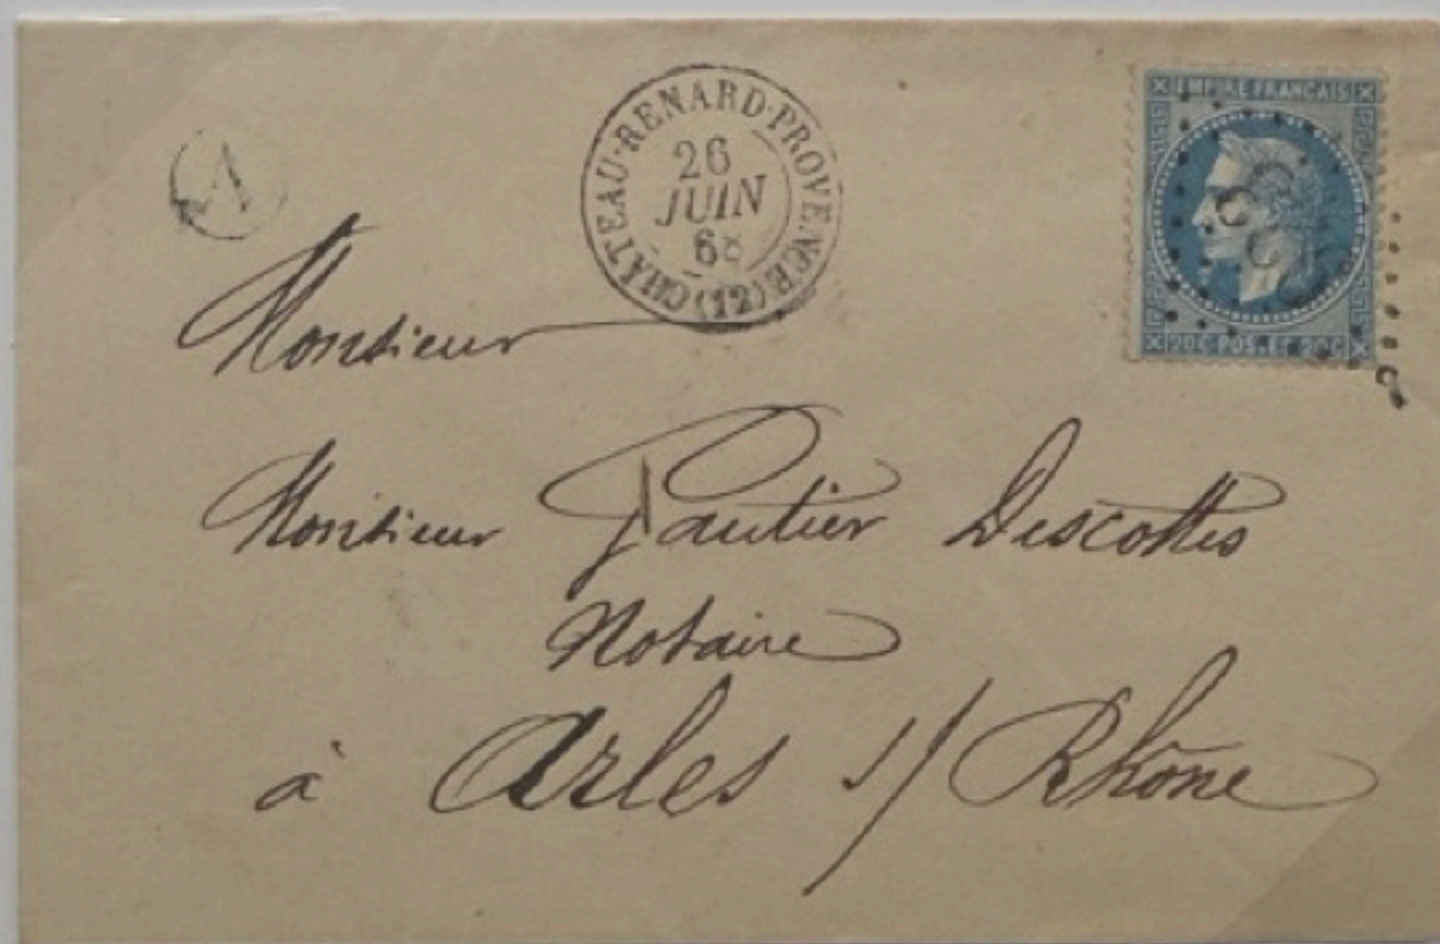 A
CHÂTEAU-RENARD-PROVENCE (12)
26
JUIN
68
EMPIRE FRANCAIS
20C POSTES 20C
Monsieur
Monsieur Gautier Descottes
Notaire
à Arles s/ Rhône